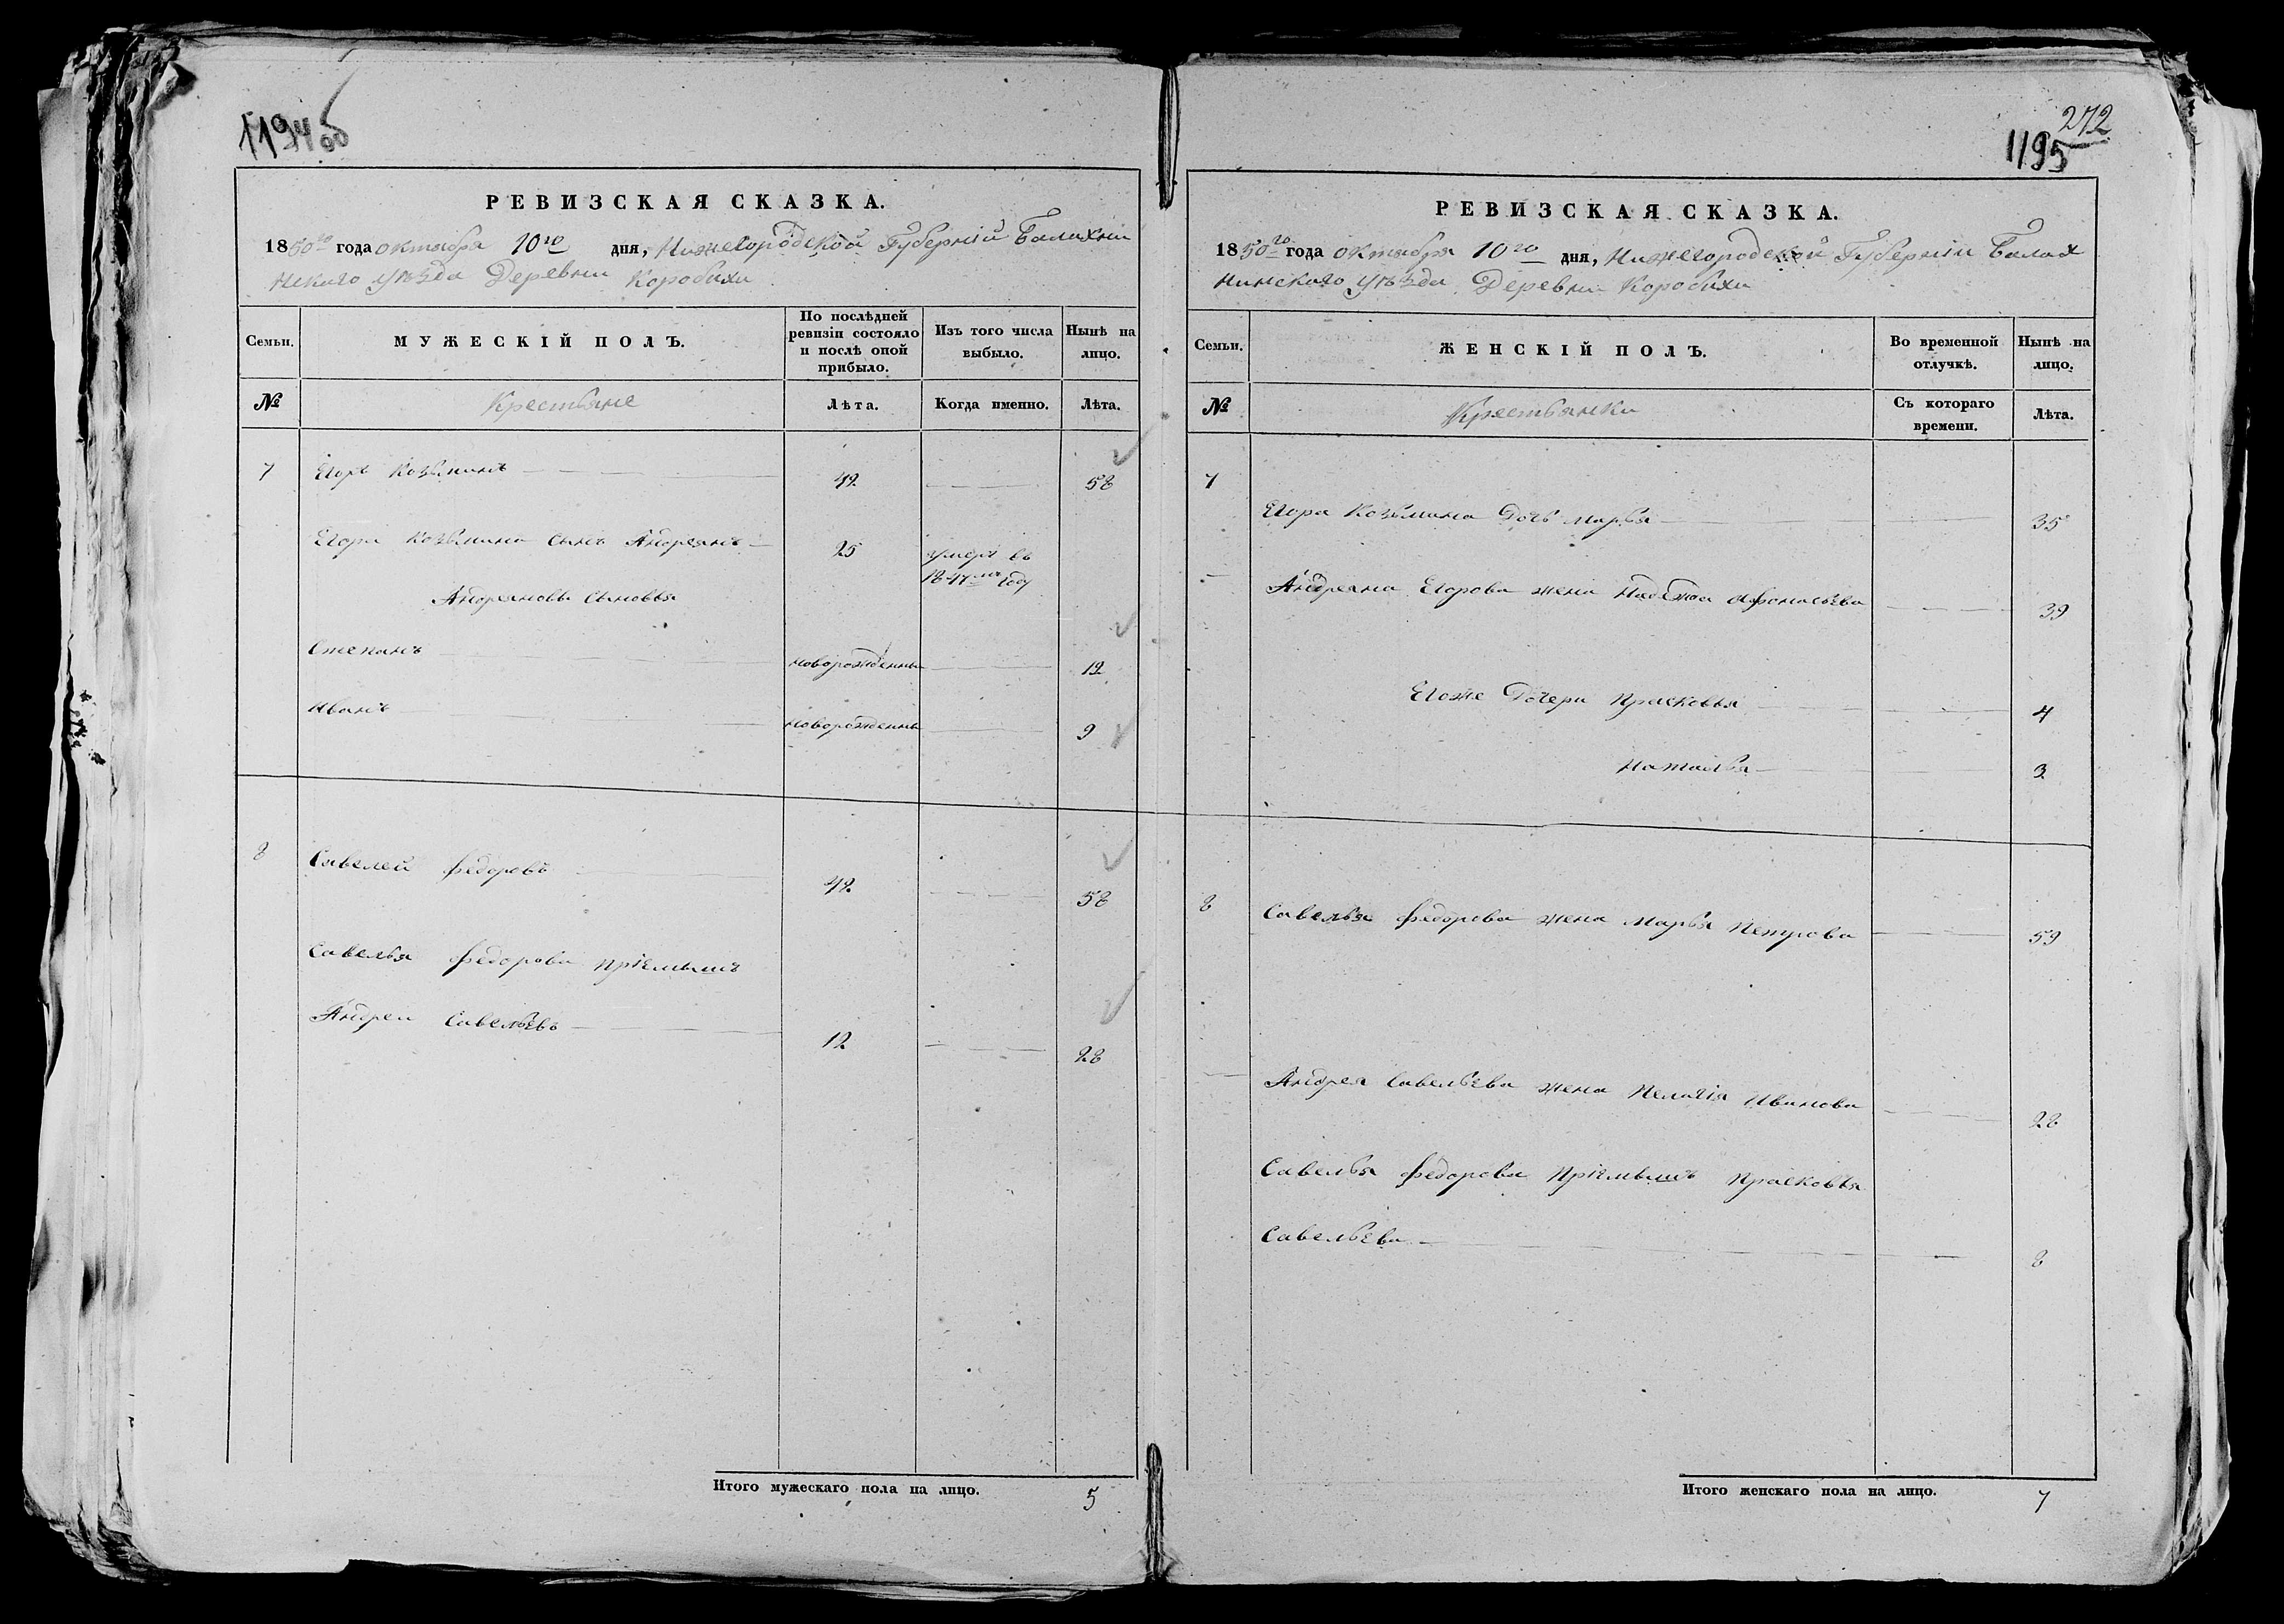 1194об
РЕВИЗСКАЯ СКАЗКА.
1850го года октября 10го дня, Нижегородской Губерніи Балахни
нскаго уѣзда Деревни Коробихи
Семьи.
МУЖЕСКІЙ ПОЛЪ.
По послѣдней
ревизіи состояло
и послѣ оной
прибыло.
Изъ того числа
выбыло.
Нынѣ на
лицо.
№
Крестьяне
Лѣта.
Когда именно.
Лѣта.
7 Егоръ Козьминъ 42 58
Егора Козьмина сынъ Андреянъ 25 умеръ въ
1847мъ году
Андреяновы сыновья
Степанъ новорожденный 12
Иванъ новорожденный 9
8 Савелей Федоровъ 42 58
Савелья Федорова пріемышъ
Андрей Савельевъ 12 28
Итого мужескаго пола на лицо. 5
272
1195
РЕВИЗСКАЯ СКАЗКА.
1850го года октября 10го дня, Нижегородской Губерніи Балах
нинскаго уѣзда Деревни Коробихи
Семьи.
ЖЕНСКІЙ ПОЛЪ.
Во временной
отлучкѣ.
Нынѣ на
лицо.
№
Крестьянки
Съ котораго
времени.
Лѣта.
7
Егора Козьмина дочь Марья 35
Андреяна Егорова жена Надежда Афонасьева 39
Егоже дочери Прасковья 4
Наталья 3
8 Савелья Федорова жена Марья Петрова 59
Андрея Савельева жена Пелагія Иванова 28
Савелья Федорова пріемышъ Прасковья
Савельева 8
Итого женскаго пола на лицо. 7